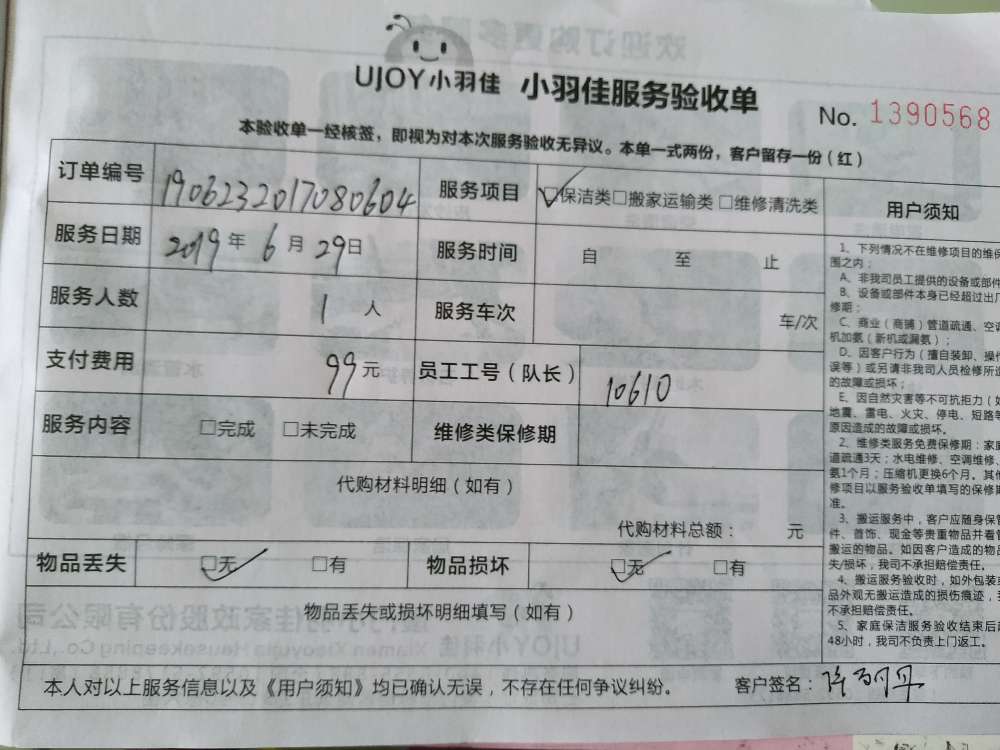 UJOY小羽佳 小羽佳服务验收单
No. 1390568
本验收单一经核签，即视为对本次服务验收无异议。本单一式两份，客户留存一份（红）
订单编号 1906232017080604 服务项目 ☑保洁类□搬家运输类□维修清洗类
服务日期 2019年6月29日 服务时间 自 至 止
服务人数 1人 服务车次 车/次
支付费用 99元 员工工号（队长） 10610
服务内容 □完成 □未完成 维修类保修期
代购材料明细（如有）
代购材料总额： 元
物品丢失 ☑无 □有 物品损坏 ☑无 □有
物品丢失或损坏明细填写（如有）
本人对以上服务信息以及《用户须知》均已确认无误，不存在任何争议纠纷。 客户签名：
用户须知
1、下列情况不在维修项目的维保
围之内：
A、非我司员工提供的设备或部件
B、设备或部件本身已经超过出厂
修期；
C、商业（商铺）管道疏通、空调
机加氨（新机或漏氨）；
D、因客户行为（擅自装卸、操作
误等）或另请非我司人员检修所造
的故障或损坏；
E、因自然灾害等不可抗拒力（如
地震、雷电、火灾、停电、短路等
原因造成的故障或损坏。
2、维修类服务免费保修期：家庭
道疏通3天；水电维修、空调维修、
氨1个月；压缩机更换6个月。其他
修项目以服务验收单填写的保修期
准。
3、搬运服务中，客户应随身保管
件、首饰、现金等贵重物品并看管
搬运的物品。如因客户造成的物品
失/损坏，我司不承担赔偿责任。
4、搬运服务验收时，如外包装或
品外观无搬运造成的损伤痕迹，我
不承担赔偿责任。
5、家庭保洁服务验收结束后超
48小时，我司不负责上门返工。